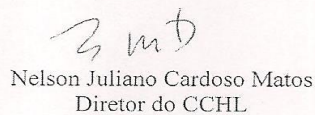 Nelson Juliano Cardoso Matos
Diretor do CCHL